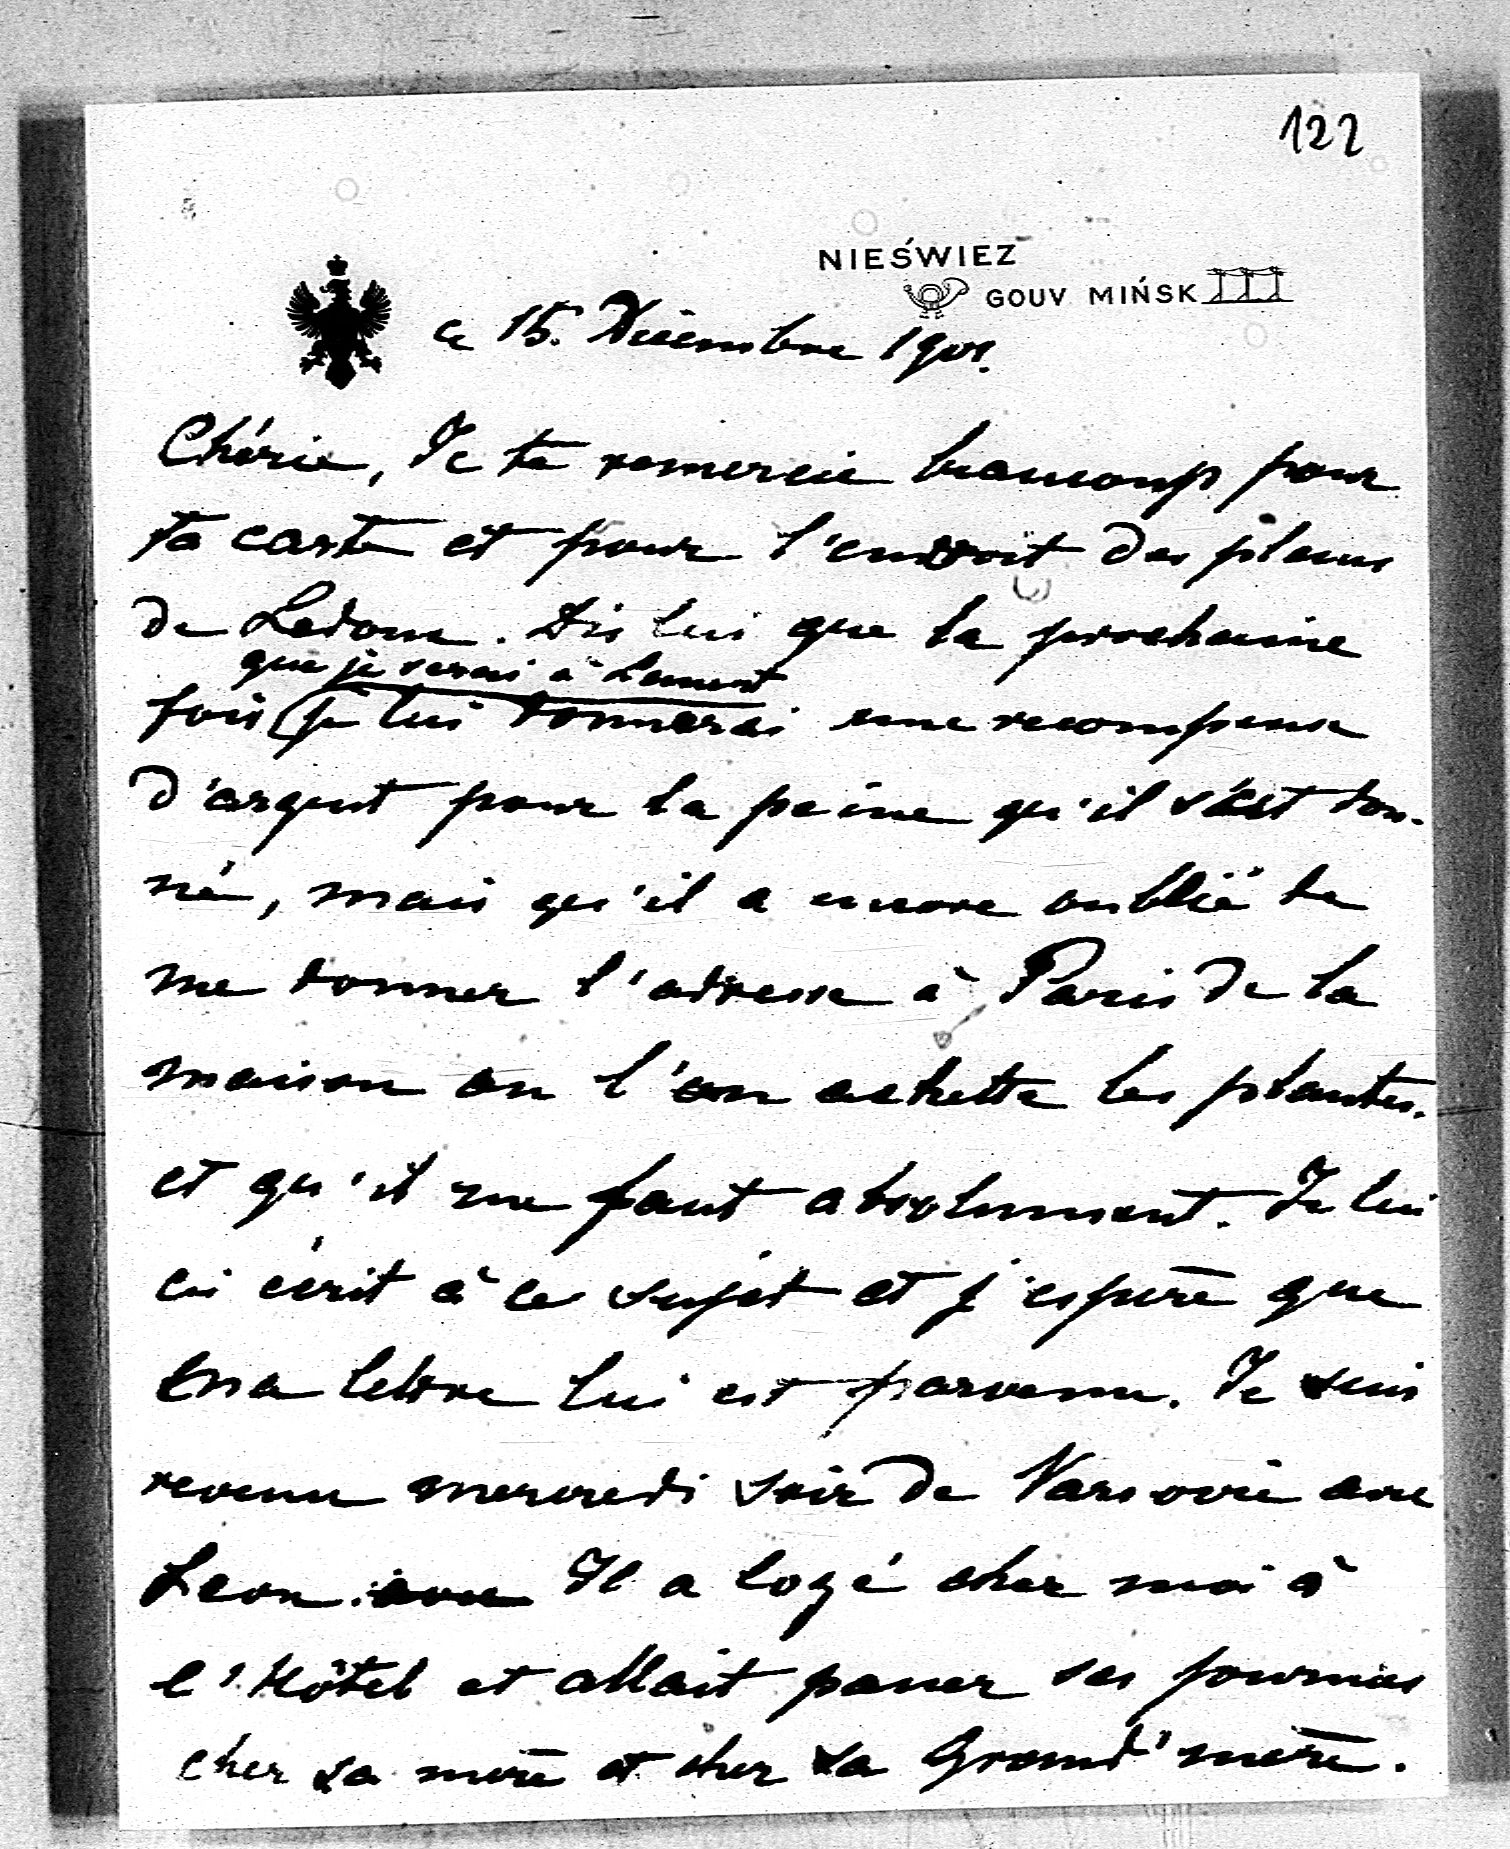 122
NIEŚWIEZ
GOUV MIŃSK
ce 15. Décembre 1901.
Chérie, Je te remercie beaucoup pour
ta carte et pour l'endroit des plans
de Ledoux. Dis lui que la prochaine
que je serai à
fois je lui donnerai une recompense
d'argent pour la peine qu'il s'est don-
né, mais qu'il a encore oublié de
me donner l'adresse à Paris de la
maison ou l'on achette les plantes.
et qu'il me faut absolument. Je lui
ai écrit à ce sujet et j'espère que
ma lettre lui est parvenu. Je suis
revenu mercredi soir de Varsovie avec
Leon. Il a logé chez moi à
l'Hôtel et allait passer ses journées
chez sa mère et chez sa Grand'mère.